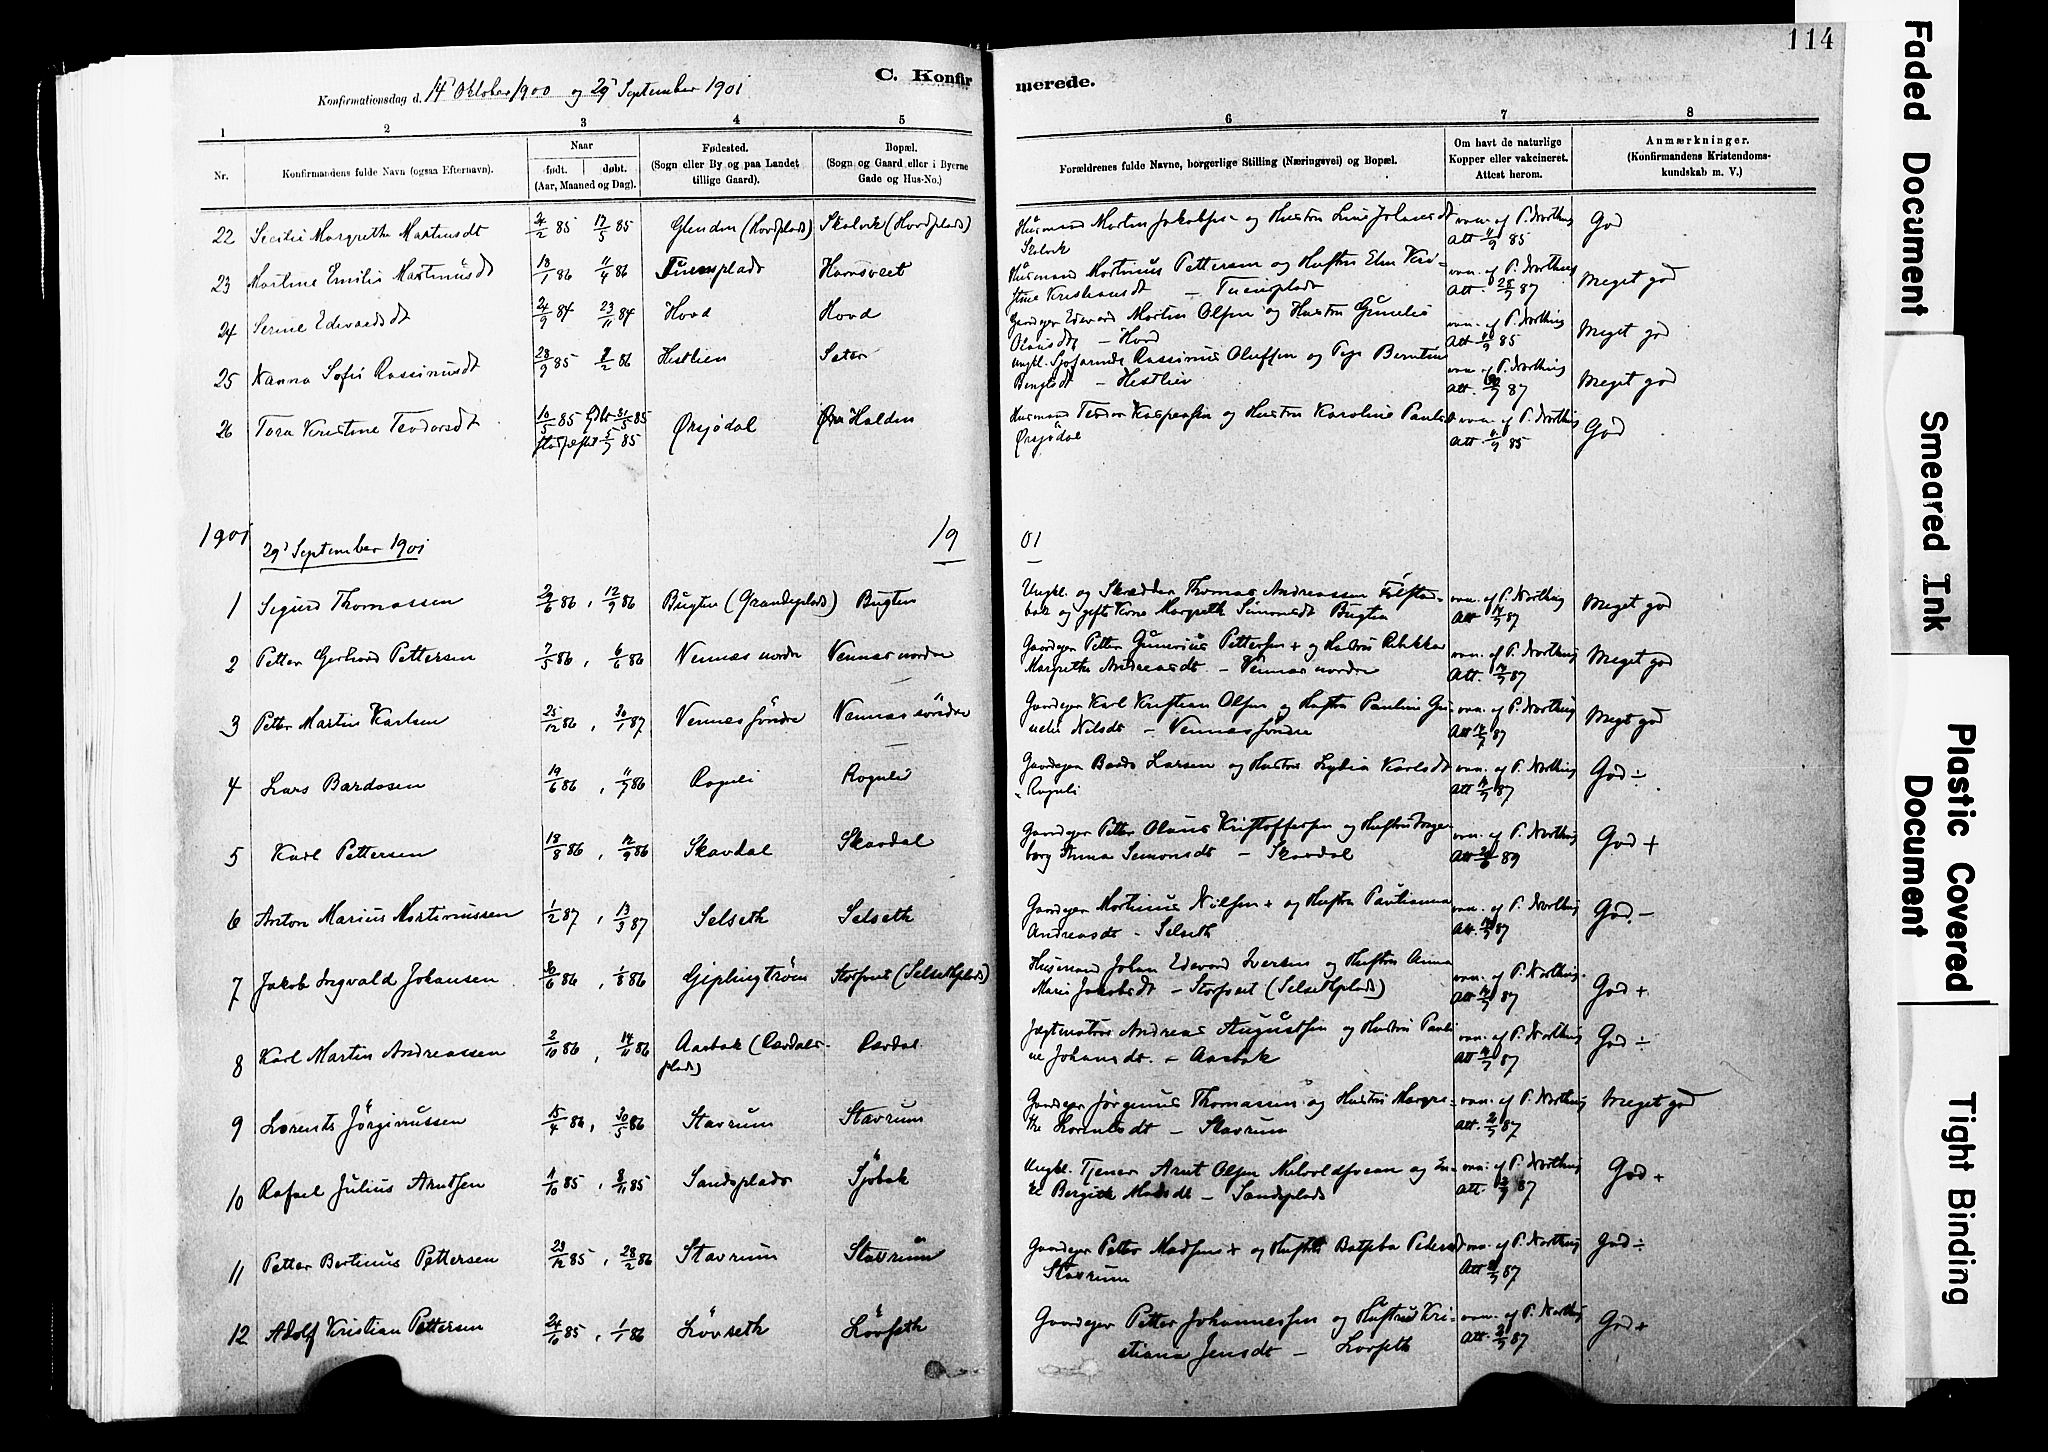 114
C. Konfirmerede.
Konfirmationsdag d. 14 Oktober 1900 og 29 September 1901
1 2 3 4 5 6 7 8
Nr.
Konfirmandens fulde Navn (ogsaa Efternavn).
Naar
født. døbt.
(Aar, Maaned og Dag).
Fødested.
(Sogn eller By og paa Landet
tillige Gaard).
Bopæl.
(Sogn og Gaard eller i Byerne
Gade og Hus-No.)
Forældrenes fulde Navne, borgerlige Stilling (Næringsvei) og Bopæl.
Om havt de naturlige
Kopper eller vakcineret.
Attest herom.
Anmærkninger.
(Konfirmandens Kristendoms-
kundskab m. V.)
22 Secilie Margrethe Martinsdt 85 17/5 85 (Hovdplads) (Hovdplads) Husmand Martin Jakobsen og Hustru vac. af P. Northug Att 11/9 85 God
23 Martine Emilie Martinusdt 18/1 86 11/4 86 Husmand Martinus Pettersen og Hustru vac. af P. Northug Att. 87 Meget god
24 Serine Edvardsdt 24/9 84 23/11 84 Hovd Hovd Gaardeier Edvard Martin Olsen og Hustru Gunelie Olausdt – Hovd vac. af P. Northug Att 85 Meget god
25 Nanna Sofie Rassmusdt 28/9 85 86 Hestlien Sæter Ungkl. Rassmus Oluffsen og Pige Berntine – Hestlien vac. af P. Northug Att. 87 Meget god
26 Tora Kristine Teodorsdt 10/5 85 31/5 85 85 Ørsjödal Halden Husmand Teodor Kaspersen og Hustru Karoline Paulsdt Ørsjödal vac. af P. Northug Att 85 God
1901 29 September 1901 19 01
1 Sigurd Thomassen 86, 12/9 86 Bugten (Grandeplads) Bugten Ungkl. og Skrædder Thomas Andreassen og gifte Kone Margreth Simonsdt Bugten vac. af P. Northug Att 87 Meget god
2 Petter Gerhard Pettersen 7/5 86, 6/6 86 Vennæs nordre Vennæs nordre Gaardeier Petter Gunerius Pettersen + og Hustru Rebekka Margrethe Andreasdt – Vennæs nordre vac. af P. Northug Att. 87 Meget god
3 Petter Martin Karlsen 25/12 86, 30/1 87 Vennæs söndre Vennæs söndre Gaardeier Karl Kristian Olsen og Hustru Pauline Gunelie Nilsdt – Vennæs söndre vac. af P. Northug Att 87 Meget god
4 Lars Bardosen 19/6 86, 11/7 86 Rognli Rognli Gaardeier Bardo Larsen og Hustru Lydia Karlsdt Rognli vac. af P. Northug Att 87 God ÷
5 Karl Pettersen 18/8 86, 12/9 86 Skavdal Skavdal Gaardeier Petter Olaus Kristoffersen og Hustru Ingeborg Anna Simonsdt – Skavdal vac. af P. Northug Att 89 God +
6 Anton Marius Martinussen 1/2 87, 13/3 87 Selseth Selseth Gaardeier Martinus Nilsen + og Hustru Paulianna Andreasdt – Selseth vac. af P. Northug Att. 87 God –
7 Jakob Ingvald Johansen 86, 1/8 86 Storfoset (Selsethplads) Husmand Johan Edvard Iversen og Hustru Anna Marie Jakobsdt – Storfoset (Selsethplads) vac. af P. Northug Att 87 God +
8 Karl Martin Andreassen 2/10 86, 14/11 86 Aasbak (Rævdalsplads) Rævdal Jægtmatros Andreas Augustsen og Hustru Pauline Johansdt. – Aasbak vac. af P. Northug Att 87 God ÷
9 Lorents Jörginussen 15/4 86, 30/5 86 Stavrum Stavrum Gaardeier Jørginus Thomassen og Hustru Margrethe Lorentsdt – Stavrum vac. af P. Northug Att. 87 Meget god
10 Rafael Julius Arntsen 85, 8/11 85 Sandsplads Sjöbak Ungkl. Tjener Arnt Olsen og Bergitte Madsdt – Sandsplads vac. af P. Northug Att. 87 God +
11 Petter Bertinus Pettersen 23/12 85, 28/2 86 Stavrum Stavrum Gaardeier Petter Madsen + og Hustru Batseba Pedersdt Stavrum vac. af P. Northug Att 87 God ÷
12 Adolf Kristian Pettersen 24/10 85, 1/1 86 Lövseth Lövseth Gaardeier Petter Johannessen og Hustru Kristiana Jensdt – Lövseth vac. af P. Northug Att. 87 God +
Faded Document
Smeared Ink
Plastic Covered
Document
Tight Binding